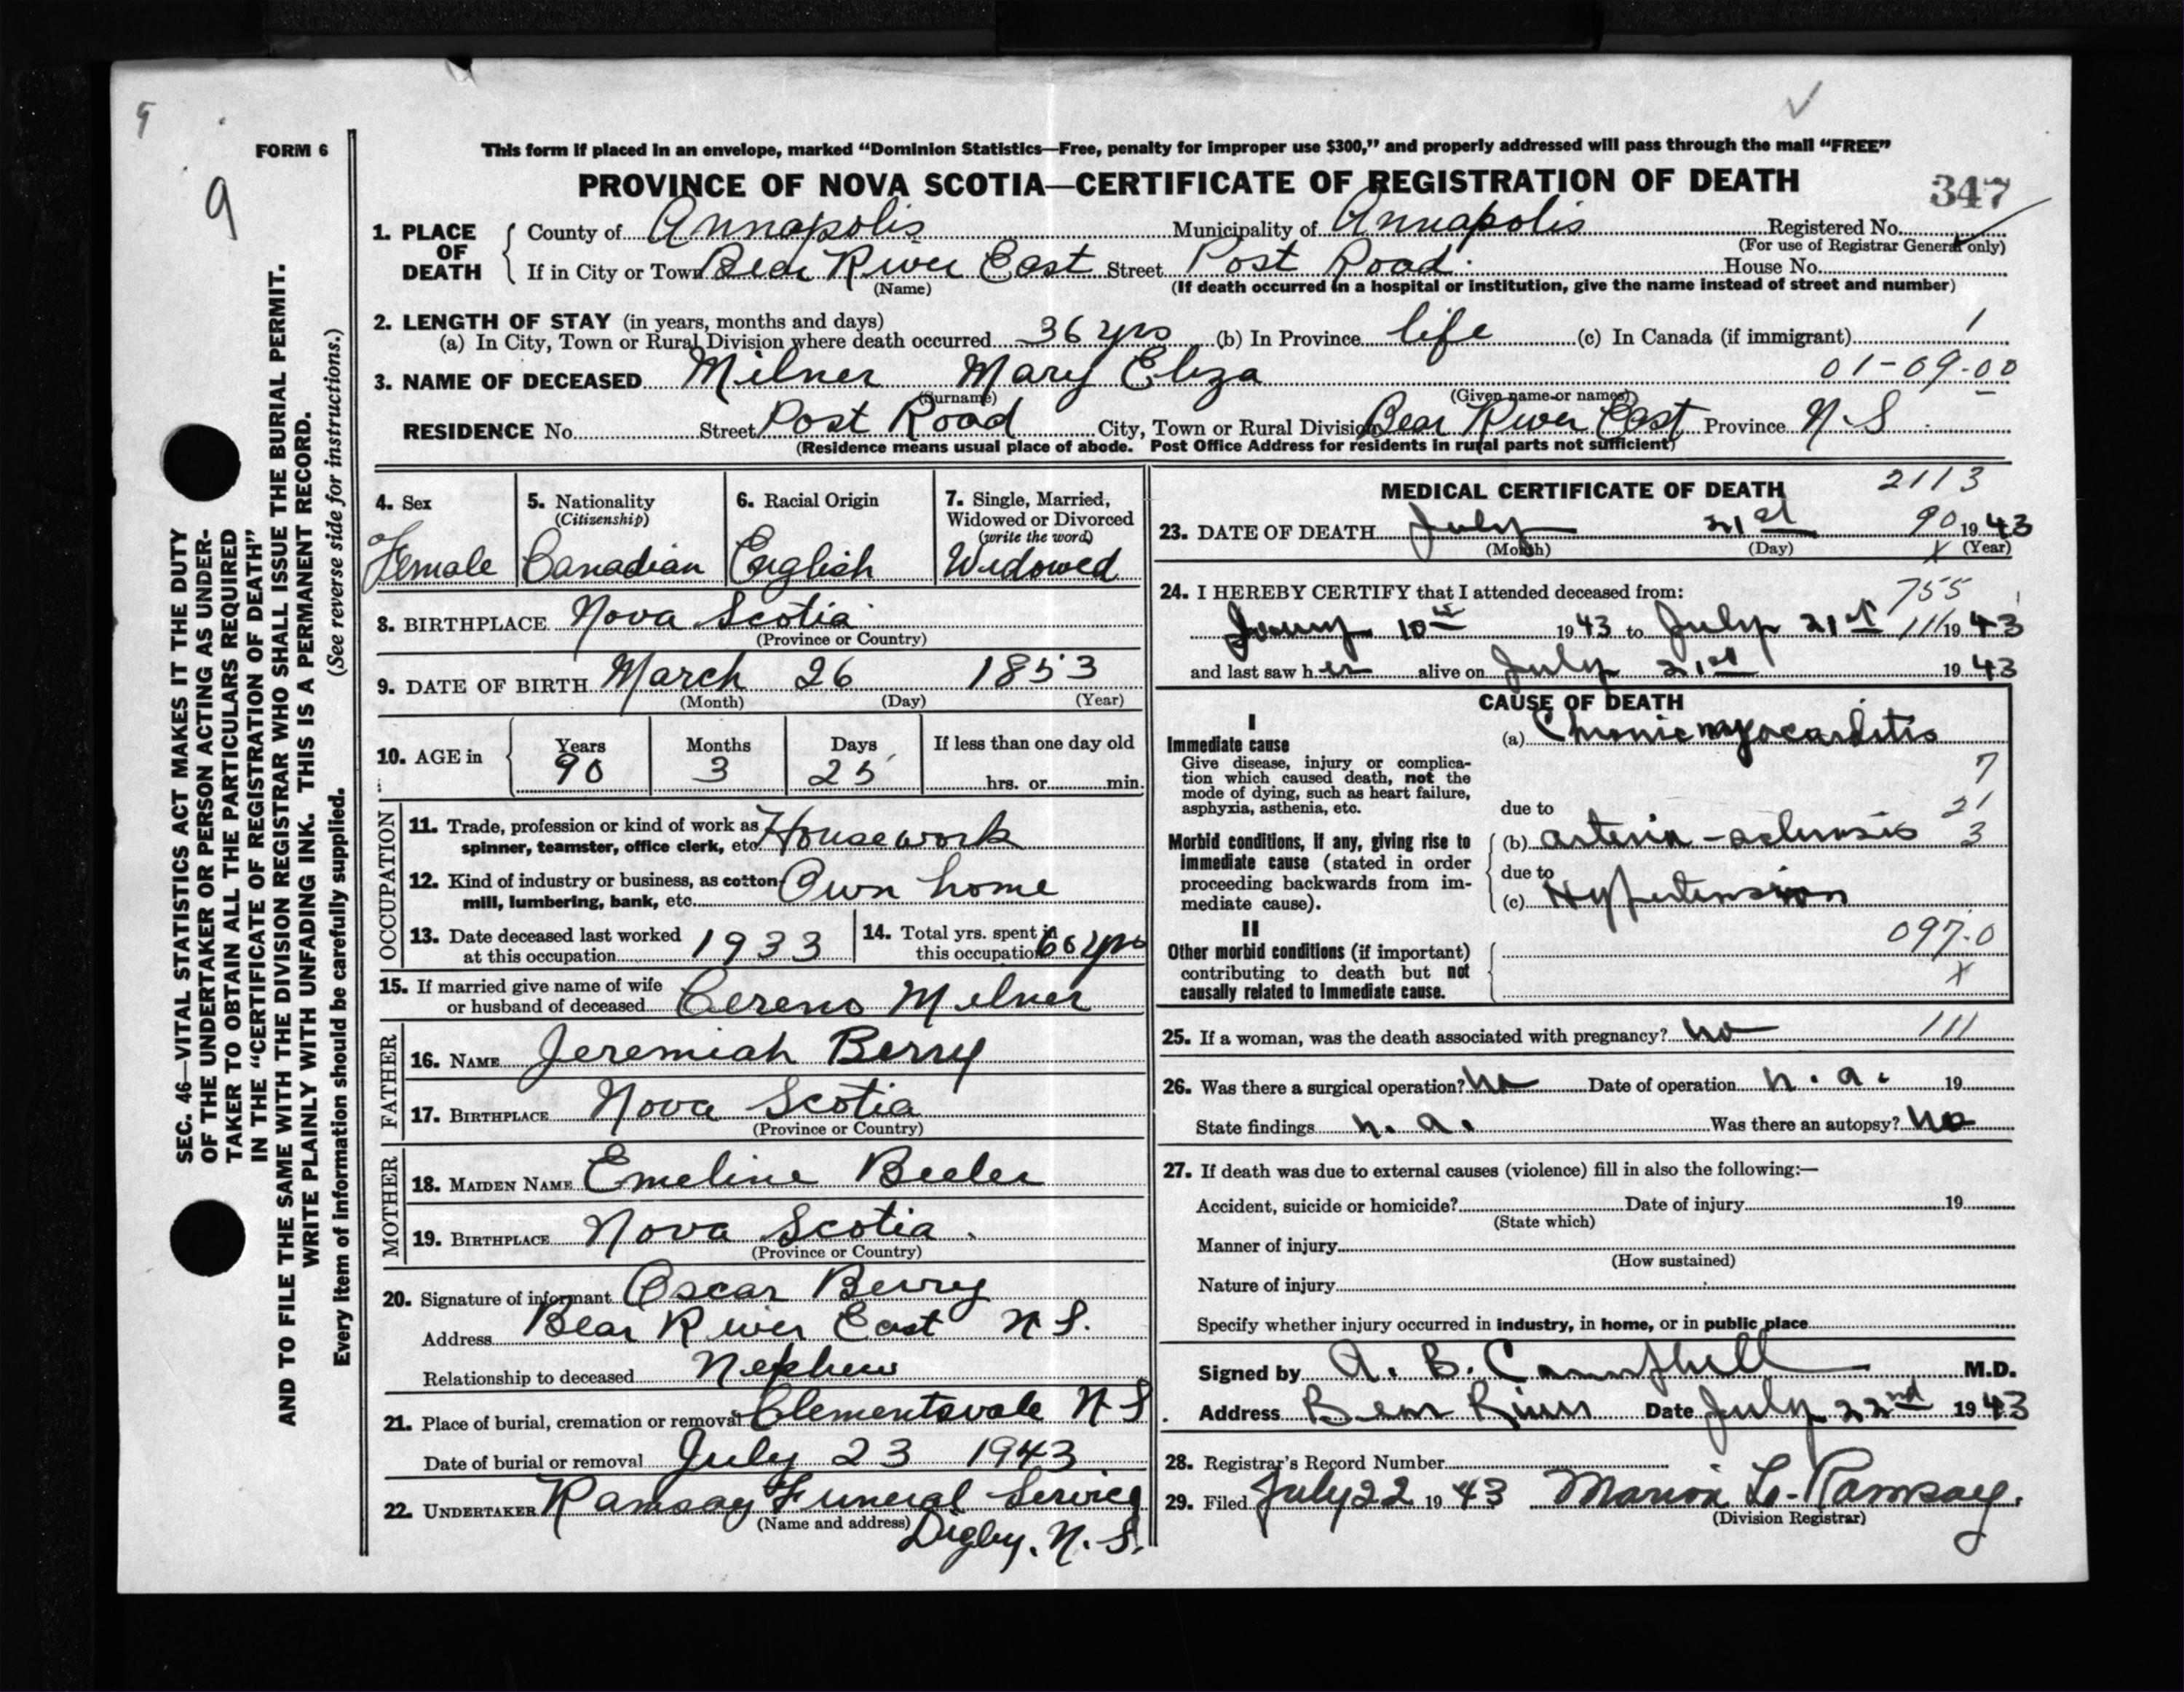 9
FORM 6
9
This form if placed in an envelope, marked “Dominion Statistics—Free, penalty for improper use $300,” and properly addressed will pass through the mail “FREE”
PROVINCE OF NOVA SCOTIA—CERTIFICATE OF REGISTRATION OF DEATH
347
1. PLACE OF DEATH
County of Annapolis Municipality of Annapolis Registered No.
(For use of Registrar General only)
If in City or Town Bear River East Street Post Road House No.
(Name) (If death occurred in a hospital or institution, give the name instead of street and number)
2. LENGTH OF STAY (in years, months and days)
(a) In City, Town or Rural Division where death occurred 36 yrs (b) In Province life (c) In Canada (if immigrant) 1
3. NAME OF DECEASED Milner Mary Eliza 01-09-00
(Surname) (Given name or names)
RESIDENCE No. Street Post Road City, Town or Rural Division Bear River East Province N.S.
(Residence means usual place of abode. Post Office Address for residents in rural parts not sufficient)
4. Sex
Female
5. Nationality
(Citizenship)
Canadian
6. Racial Origin
English
7. Single, Married,
Widowed or Divorced
(write the word)
Widowed
8. BIRTHPLACE Nova Scotia
(Province or Country)
9. DATE OF BIRTH March 26 1853
(Month) (Day) (Year)
10. AGE in
Years Months Days If less than one day old
90 3 25 hrs. or min.
OCCUPATION
11. Trade, profession or kind of work as
spinner, teamster, office clerk, etc. Housework
12. Kind of industry or business, as cotton
mill, lumbering, bank, etc. Own home
13. Date deceased last worked
at this occupation 1933
14. Total yrs. spent in
this occupation 60 yrs
15. If married give name of wife
or husband of deceased Cereno Milner
FATHER
16. NAME Jeremiah Berry
17. BIRTHPLACE Nova Scotia
(Province or Country)
MOTHER
18. MAIDEN NAME Emeline Beeler
19. BIRTHPLACE Nova Scotia.
(Province or Country)
20. Signature of informant Oscar Berry
Address Bear River East N S.
Relationship to deceased Nephew
21. Place of burial, cremation or removal Clementsvale N S
Date of burial or removal July 23 1943
22. UNDERTAKER Ramsay Funeral Service
(Name and address) Digby, N. S.
MEDICAL CERTIFICATE OF DEATH 2113
23. DATE OF DEATH July 21st 90 1943
(Month) (Day) x (Year)
24. I HEREBY CERTIFY that I attended deceased from: 755
10th 1943 to July 21st 111 1943
and last saw her alive on July 21st 1943
CAUSE OF DEATH
I
Immediate cause
Give disease, injury or complica-
tion which caused death, not the
mode of dying, such as heart failure,
asphyxia, asthenia, etc.
(a) Chronic myocarditis
7
due to
21
Morbid conditions, if any, giving rise to
immediate cause (stated in order
proceeding backwards from im-
mediate cause).
(b) arterio-sclerosis 3
due to
(c) Hypertension
II
Other morbid conditions (if important)
contributing to death but not
causally related to immediate cause.
097.0
x
25. If a woman, was the death associated with pregnancy? no 111
26. Was there a surgical operation? no Date of operation n. a. 19
State findings n. a. Was there an autopsy? No
27. If death was due to external causes (violence) fill in also the following:—
Accident, suicide or homicide? Date of injury 19
(State which)
Manner of injury
(How sustained)
Nature of injury
Specify whether injury occurred in industry, in home, or in public place
Signed by A. B. Campbell M.D.
Address Bear River Date July 22nd 1943
28. Registrar's Record Number
29. Filed July 22 1943 Marion L. Ramsay.
(Division Registrar)
SEC. 46—VITAL STATISTICS ACT MAKES IT THE DUTY
OF THE UNDERTAKER OR PERSON ACTING AS UNDER-
TAKER TO OBTAIN ALL THE PARTICULARS REQUIRED
IN THE “CERTIFICATE OF REGISTRATION OF DEATH”
AND TO FILE THE SAME WITH THE DIVISION REGISTRAR WHO SHALL ISSUE THE BURIAL PERMIT.
WRITE PLAINLY WITH UNFADING INK. THIS IS A PERMANENT RECORD.
Every item of information should be carefully supplied. (See reverse side for instructions.)